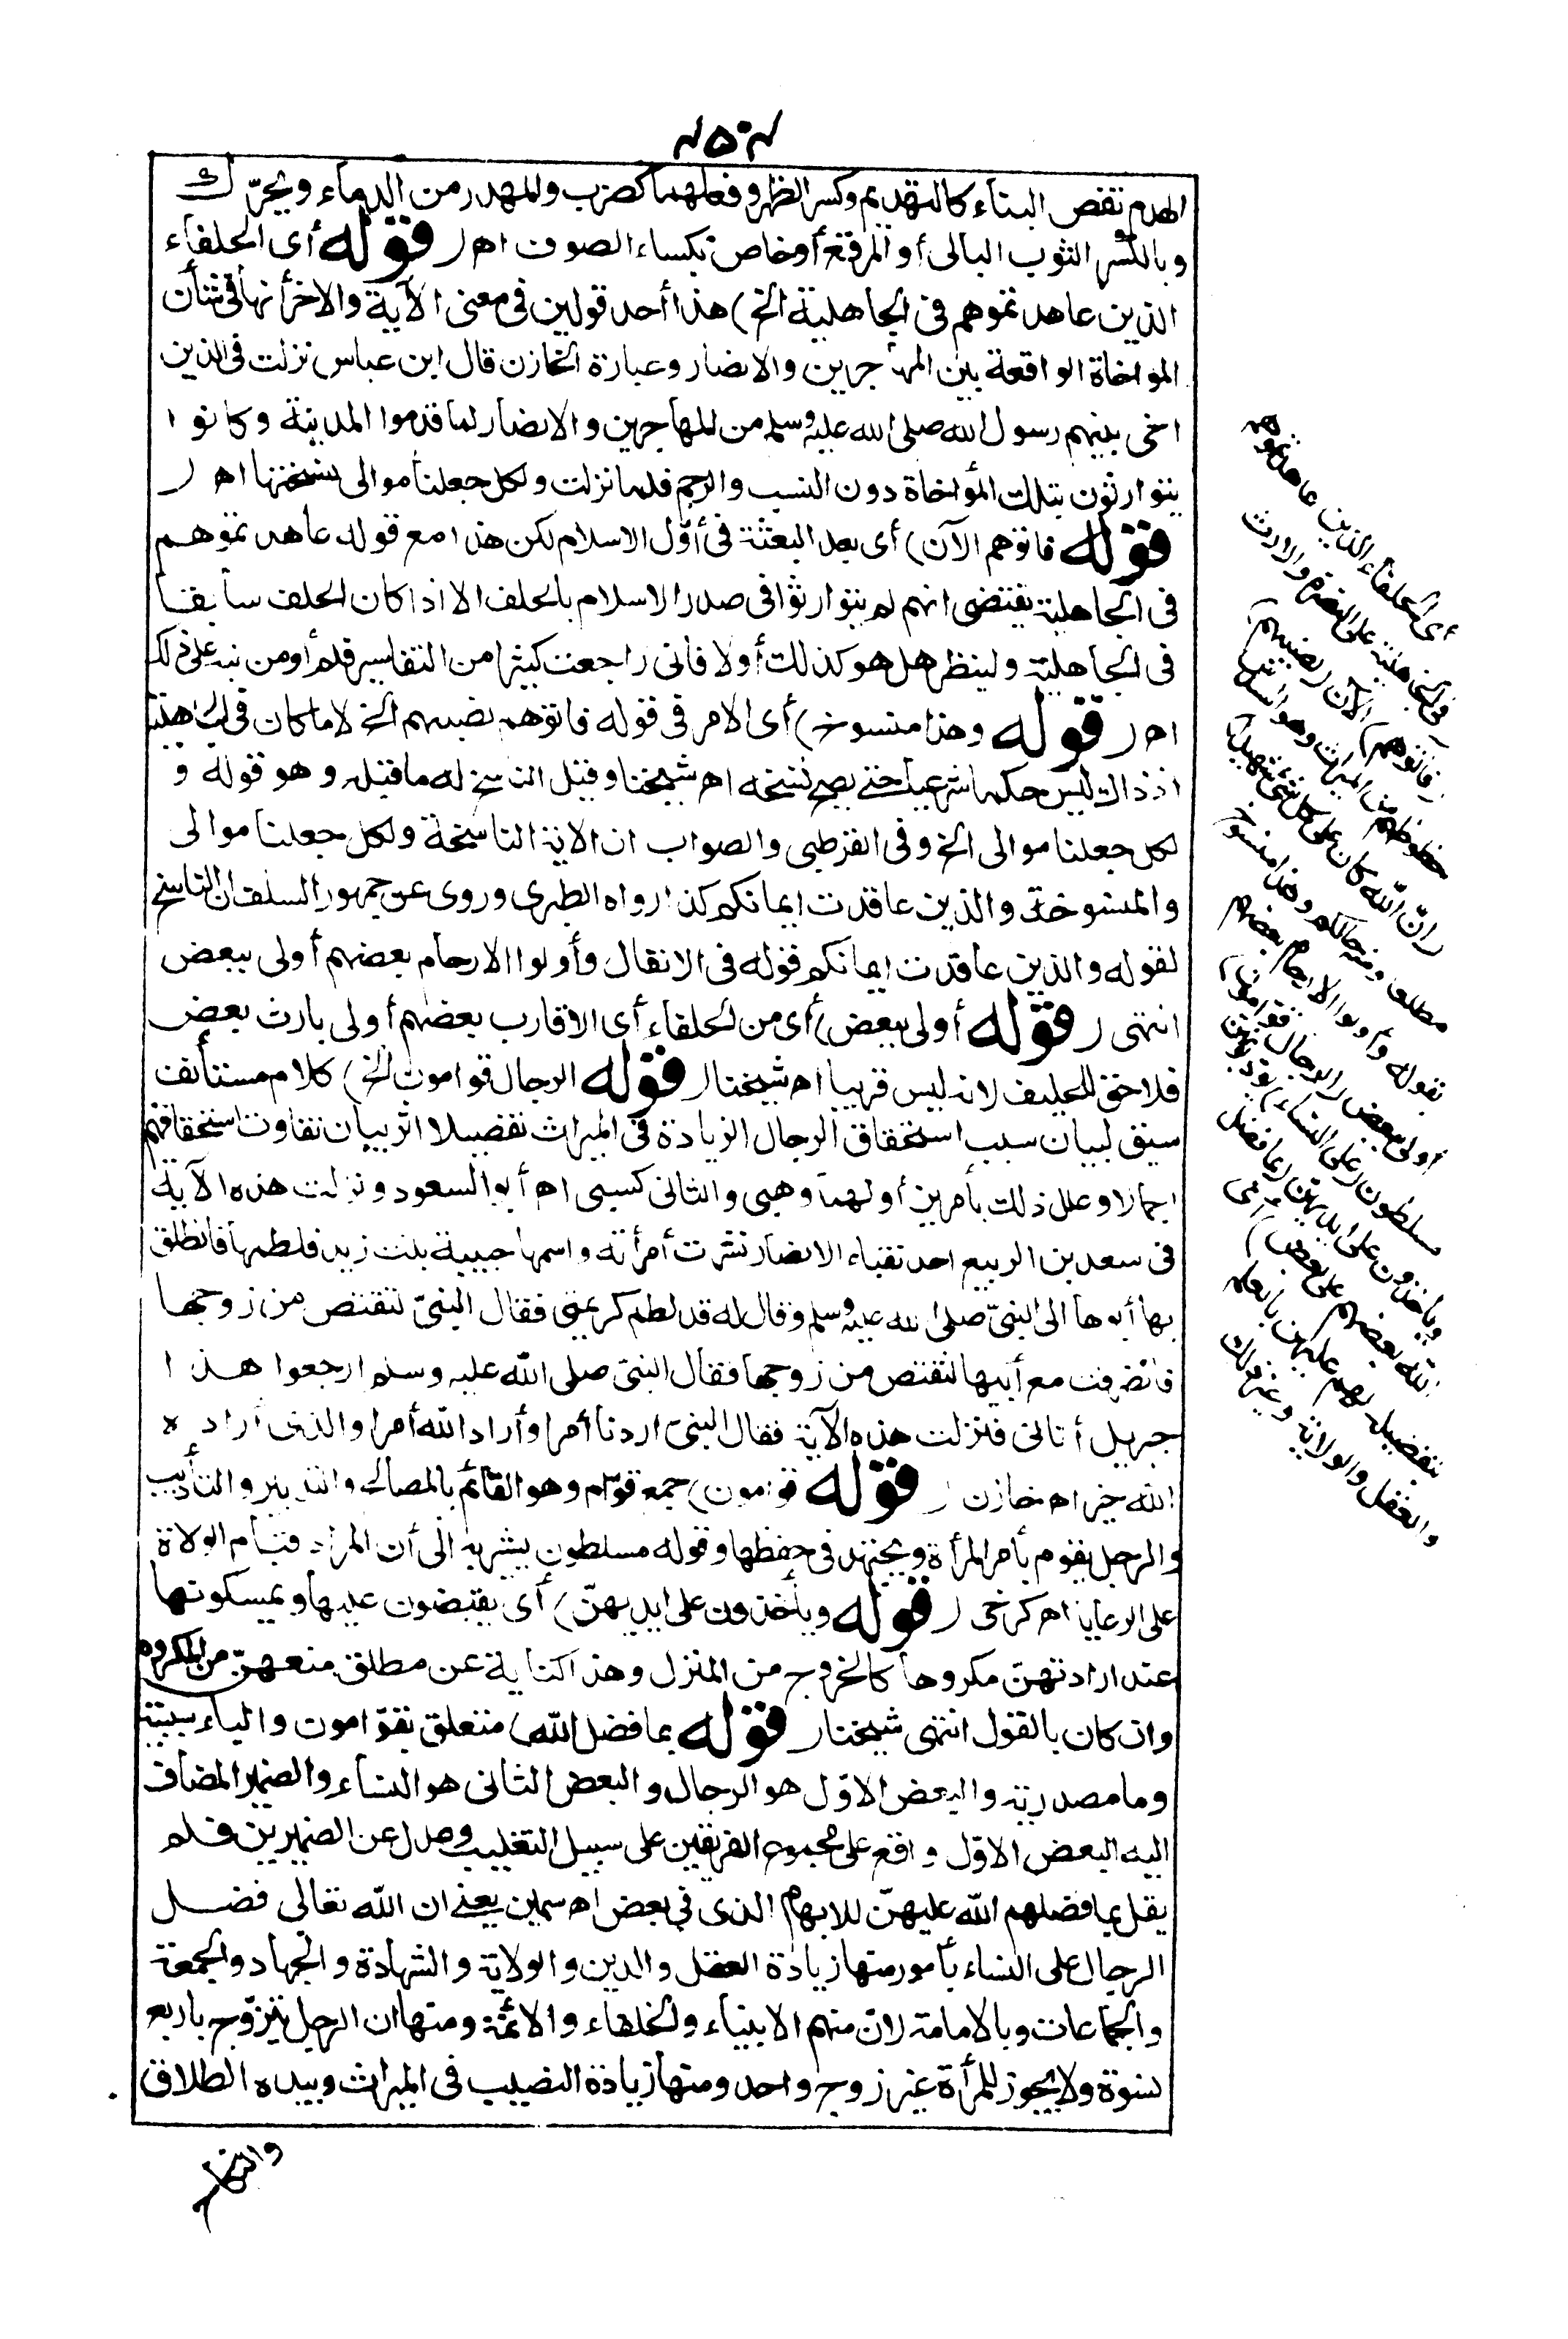 ٢٥٠٢
الهدم نقض البناء كالتهديم وكسر الظهر وفعلهما كضرب والمهدر من الدماء ويحرّك
وبالكسر الثوب البالى أو المرقع أو خاص بكساء الصوف اه ( قوله أى الحلفاء
الذين عاهدتموهم فى الجاهلية الخ) هذا أحد قولين فى معنى الآية والاخر أنها فى شأن
المواخاة الواقعة بين المهاجرين والانصار وعبارة الخازن قال ابن عباس نزلت فى الذين
اخى بينهم رسول الله صلى الله عليه وسلم من المهاجرين والانصار لما قدموا المدينة وكانوا
يتوارثون بتلك المؤاخاة دون النسب والرحم فلما نزلت ولكل جعلنا موالى نسختها اه (
قوله فاتوهم الآن) أى بعد البعثة فى أوّل الاسلام لكن هذا مع قوله عاهدتموهم
فى الجاهلية يقتضى انهم لم يتوارثوا فى صدر الاسلام بالحلف الا اذا كان الحلف سابقا
فى الجاهلية ولينظر هل هو كذلك أولا فانى راجعت كثيرا من التفاسير فلم أر من نبه على ذلك
اه ( قوله وهذا منسوخ) أى الامر فى قوله فاتوهم نصيبهم الخ لا ما كان فى الجاهلية
اذ ذاك ليس حكما شرعيا حتى يصح نسخه اه شيخنا وقيل الناسخ له ما قبله وهو قوله و
لكل جعلنا موالى الخ وفى القرطبى والصواب ان الاية الناسخة ولكل جعلنا موالى
والمنسوخة والذين عاقدت ايمانكم كذا رواه الطبرى وروى عن جمهور السلف ان الناسخ
لقوله والذين عاقدت ايمانكم قوله فى الانفال وأولوا الارحام بعضهم أولى ببعض
انتهى ( قوله أولى ببعض) أى من الحلفاء أى الاقارب بعضهم أولى بارث بعض
فلا حق للحليف لانه ليس قريبا اه شيخنا ( قوله الرجال قوامون الخ) كلام مستأنف
سيق لبيان سبب استحقاق الرجال الزيادة فى الميراث تفصيلا اثر بيان تفاوت استحقاقهم
اجمالا وعلل ذلك بأمرين أولهما وهبى والثانى كسبى اه أبو السعود ونزلت هذه الآية
فى سعد بن الربيع احد نقباء الانصار نشزت أمرأته واسمها حبيبة بنت زيد فلطمها فانطلق
بها أبوها الى النبىّ صلى الله عليه وسلم وقال له قد لطم كريمتى فقال النبىّ لتقتص من زوجها
فانصرفت مع أبيها لتقتص من زوجها فقال النبىّ صلى الله عليه وسلم ارجعوا هذا
جبريل أتانى فنزلت هذه الآية فقال النبىّ اردنا أمرا وأراد الله أمرا والذى أراده
الله خير اه خازن ( قوله قوامون) جمع قوّام وهو القائم بالمصالح والتدبير والتأديب
والرجل يقوم بأمر المرأة ويجتهد فى حفظها وقوله مسلطون يشير به الى أن المراد قيام الولاة
على الرعايا اه كرخى ( قوله ويأخذون على ايديهنّ) أى يقبضون عليها ويمسكونها
عند ارادتهنّ مكروها كالخروج من المنزل وهذا كناية عن مطلق منعهنّ من المكروه
وان كان بالقول انتهى شيخنا ( قوله بما فضل الله) متعلق بقوّامون والباء سببية
وما مصدرية والبعض الاوّل هو الرجال والبعض الثانى هو النساء والضمير المضاف
اليه البعض الاوّل واقع على مجموع الفريقين على سبيل التغليب وعدل عن الضميرين فلم
يقل بما فضلهم الله عليهنّ للابهام الذى فى بعض اه سمين يعنى ان الله تعالى فضل
الرجال على النساء بأمور منها زيادة العقل والدين والولاية والشهادة والجهاد والجمعة
والجماعات وبالامامة لانّ منهم الانبياء والخلفاء والائمّة ومنها ان الرجل يتزوّج باربع
نسوة ولا يجوز للمرأة غير زوج واحد ومنها زيادة النصيب فى الميراث وبيده الطلاق
أى الحلفاء الذين عاهدتموهم
فى الجاهلية على النصرة والارث
(فآتوهم) الآن (نصيبهم)
حظوظهم من الميراث وهو السدس
(انّ الله كان على كل شئ شهيدا)
مطلعا ومنه حالكم وهذا منسوخ
بقوله وأولوا الارحام بعضهم
أولى ببعض (الرجال قوامون)
مسلطون (على النساء) يؤدبونهن
ويأخذون على ايديهنّ (بما فضل
الله بعضهم على بعض) أى
بتفضيله لهم عليهن بالعلم
والعقل والولاية وغير ذلك